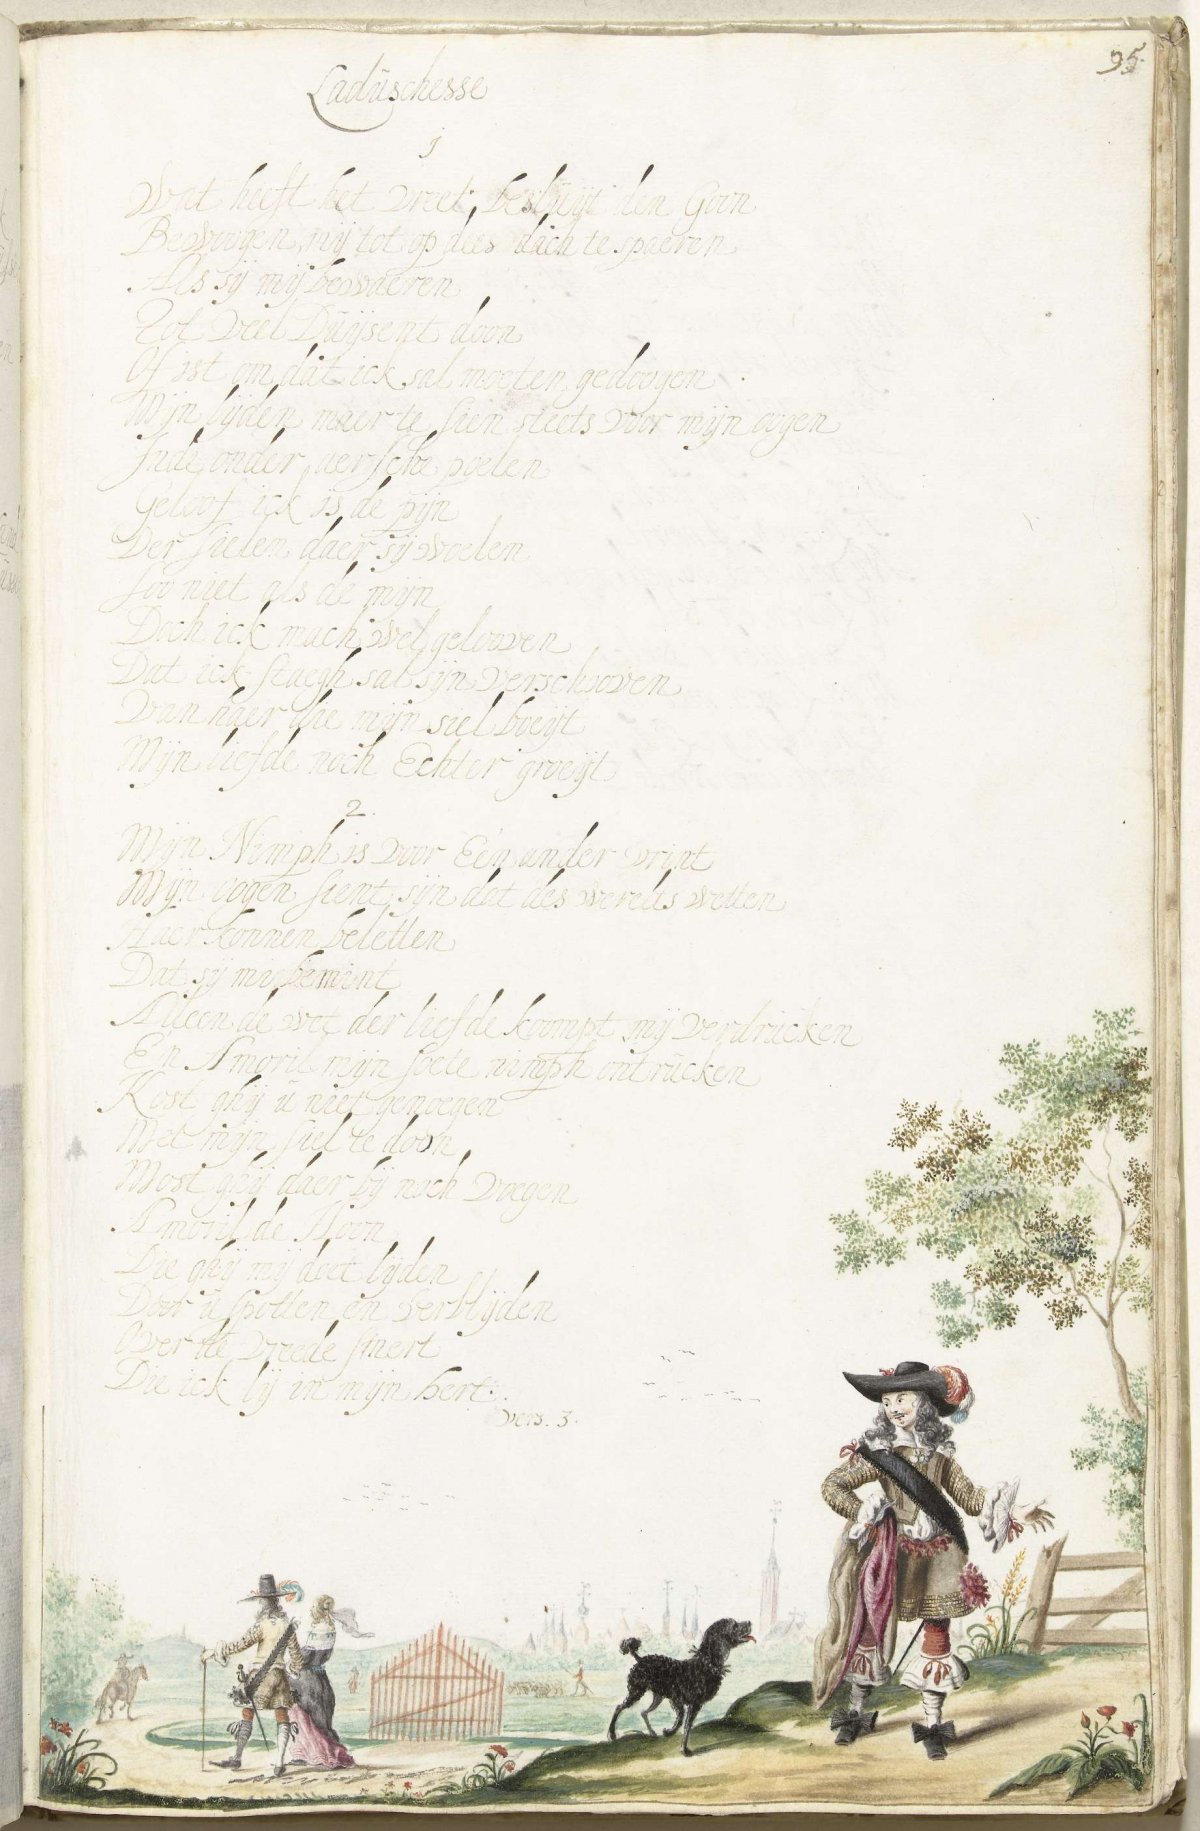 95.
Ladŭschesse
1
Wat heeft het vreet beslŭijt den Goon
Bewoogen mij tot op dees dach te spaeren
Als sij mij bewaeren
Tot veel Dŭijsent doon
Of ist om dat ick sal moeten gedoogen
Mijn lijden maer te sien steets voor mijn oogen
Inde onder aersche poelen
Geloof ick is de pijn
Der sielen daer sij woelen
Soo niet als de mijn
Doch ick mach wel gelooven
Dat ick staegh sal sijn verschooven
Van haer die mijn siel boeijt
Mijn liefde noch Echter groeijt
2
Mijn Nimph is voor Een ander vrint
Mijn oogen sient sijn dat des werelts wetten
Haer konnen beletten
Dat sij mij bemint
Alleen de wet der liefde koompt mij verdrŭcken
En Amoril mijn soete nimph ontrŭcken
Kost ghij ŭ niet genoegen
Met mijn siel te doon
Most ghij daer bij noch voegen
Amoril de Hoon
Die ghij mij doet lijden
Door ŭ spotten en verblijden
Over de vreede smert
Die ick lij in mijn hert.
vers. 3.